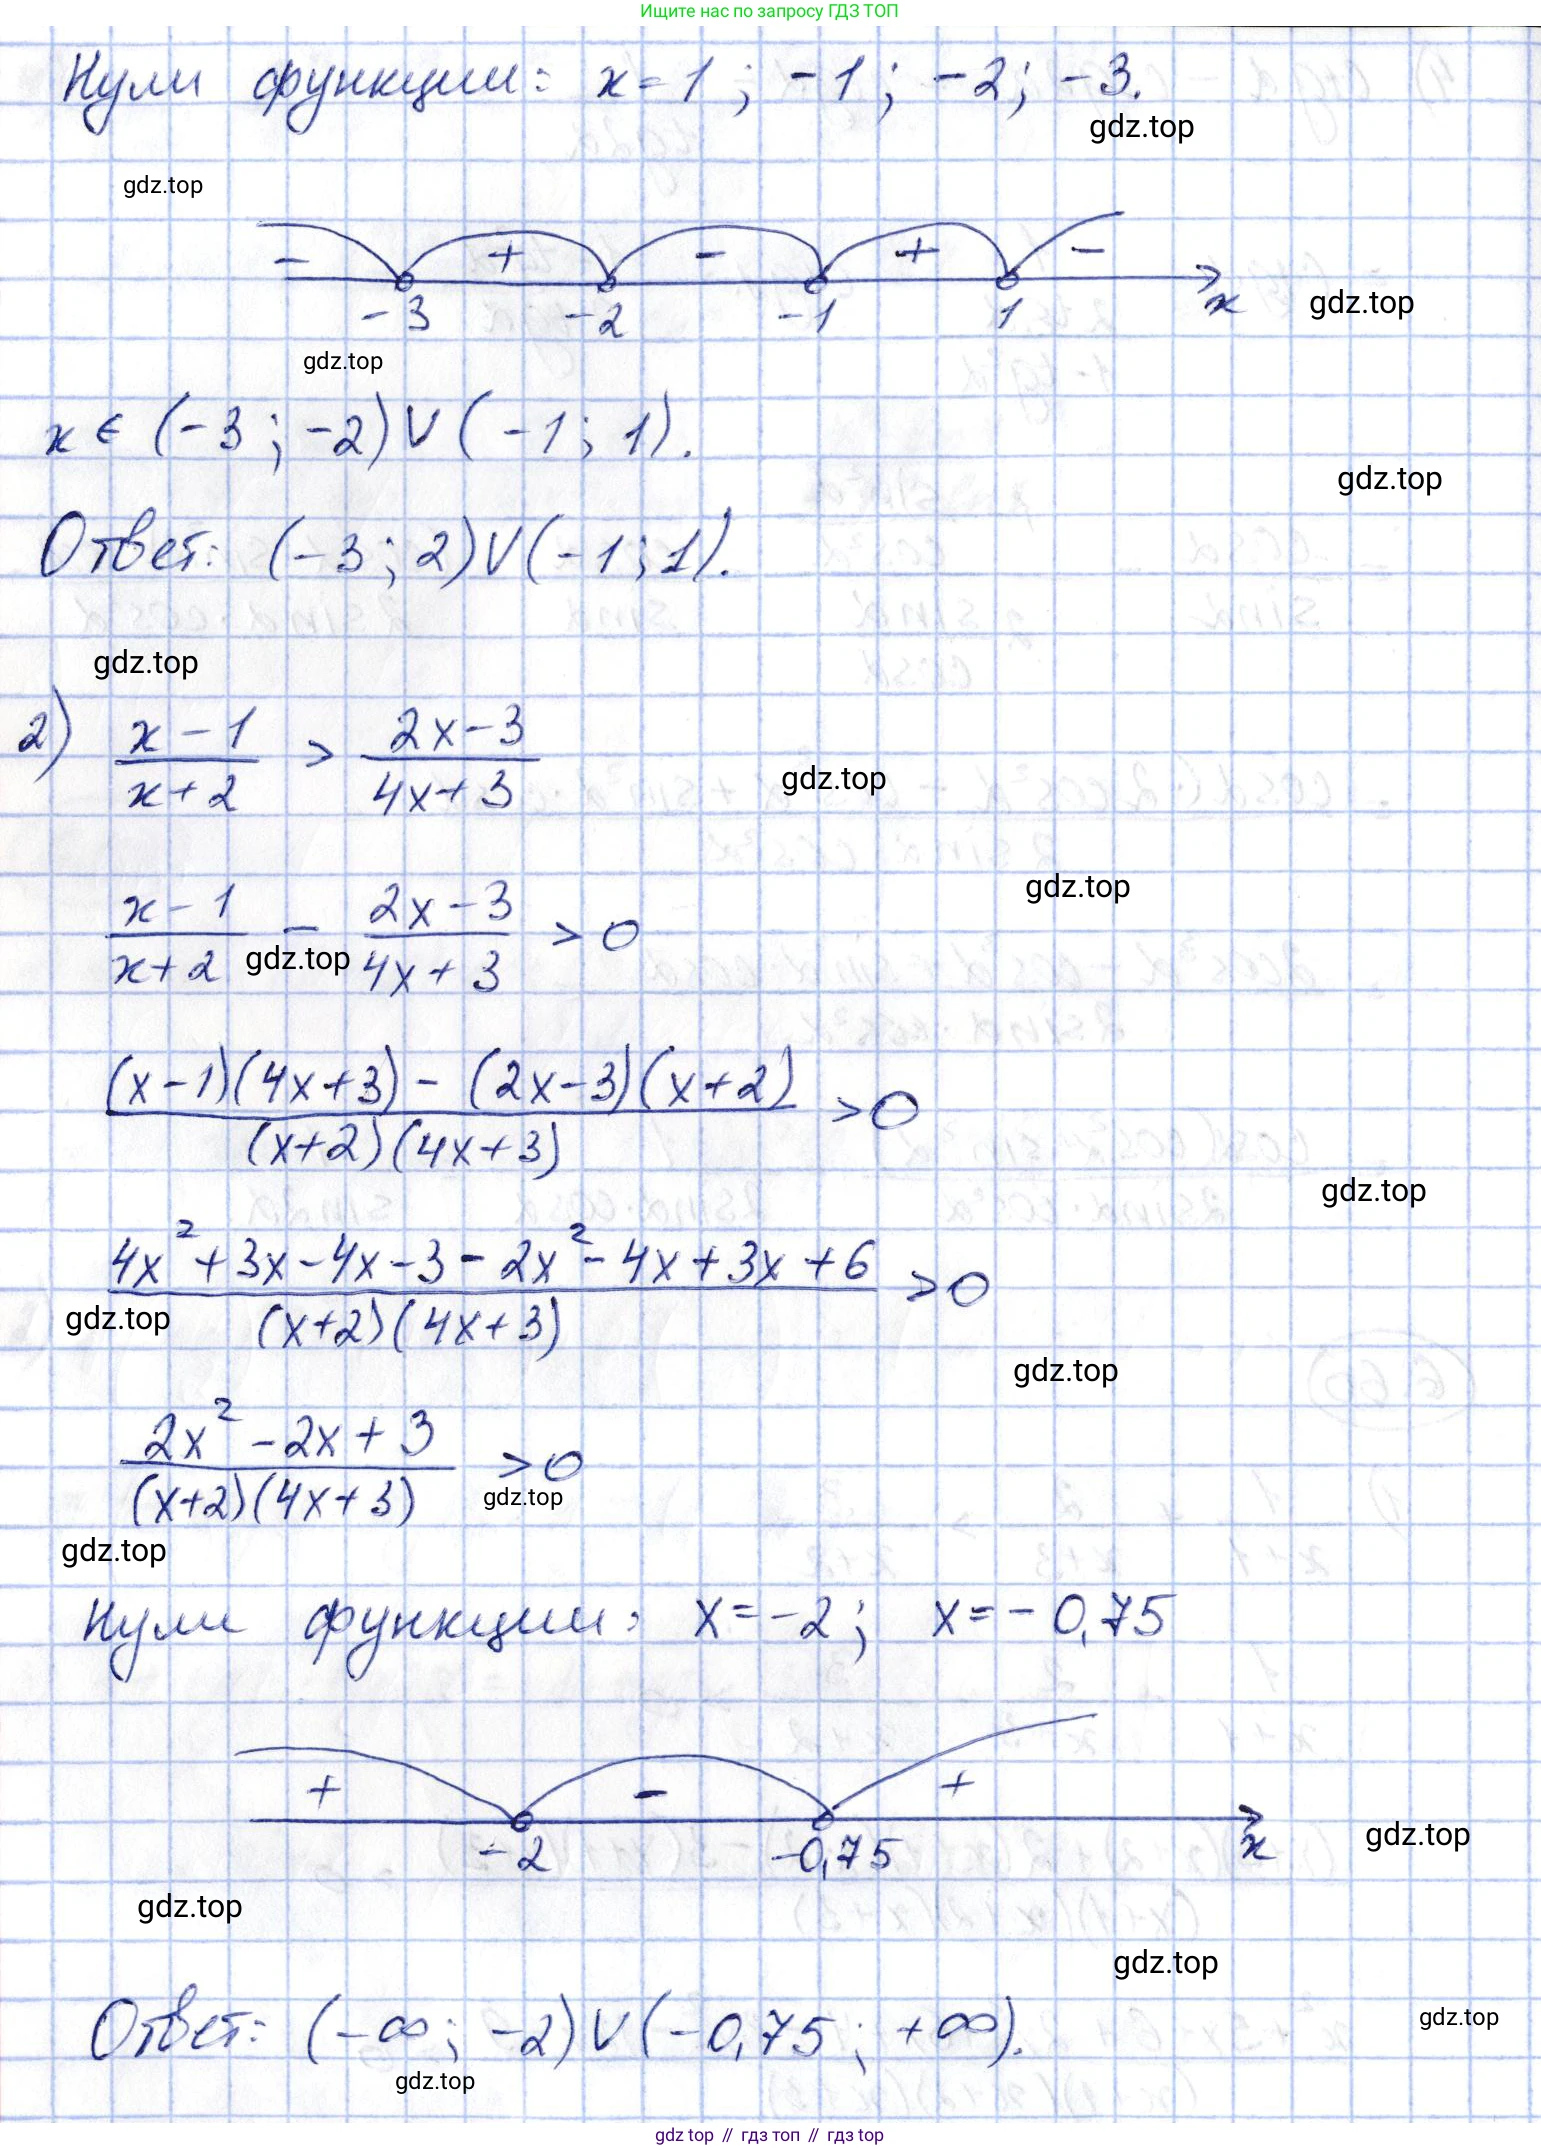 Ищите нас по запросу ГДЗ ТОП
Нули функции: x = 1; -1; -2; -3.
gdz.top
gdz.top
- + - + -
-3 -2 -1 1 x
gdz.top
gdz.top
x ∈ (-3; -2) ∪ (-1; 1).
gdz.top
Ответ: (-3; 2) ∪ (-1; 1).
gdz.top
2) (x-1)/(x+2) > (2x-3)/(4x+3)
gdz.top
gdz.top
(x-1)/(x+2) - (2x-3)/(4x+3) > 0
gdz.top
((x-1)(4x+3) - (2x-3)(x+2))/((x+2)(4x+3)) > 0
gdz.top
(4x² + 3x - 4x - 3 - 2x² - 4x + 3x + 6)/((x+2)(4x+3)) > 0
gdz.top
gdz.top
(2x² - 2x + 3)/((x+2)(4x+3)) > 0
gdz.top
gdz.top
Нули функции: x = -2; x = -0,75
+ - +
-2 -0,75 x
gdz.top
gdz.top
gdz.top
Ответ: (-∞; -2) ∪ (-0,75; +∞).
gdz.top
gdz.top
gdz top // гдз топ // гдз top